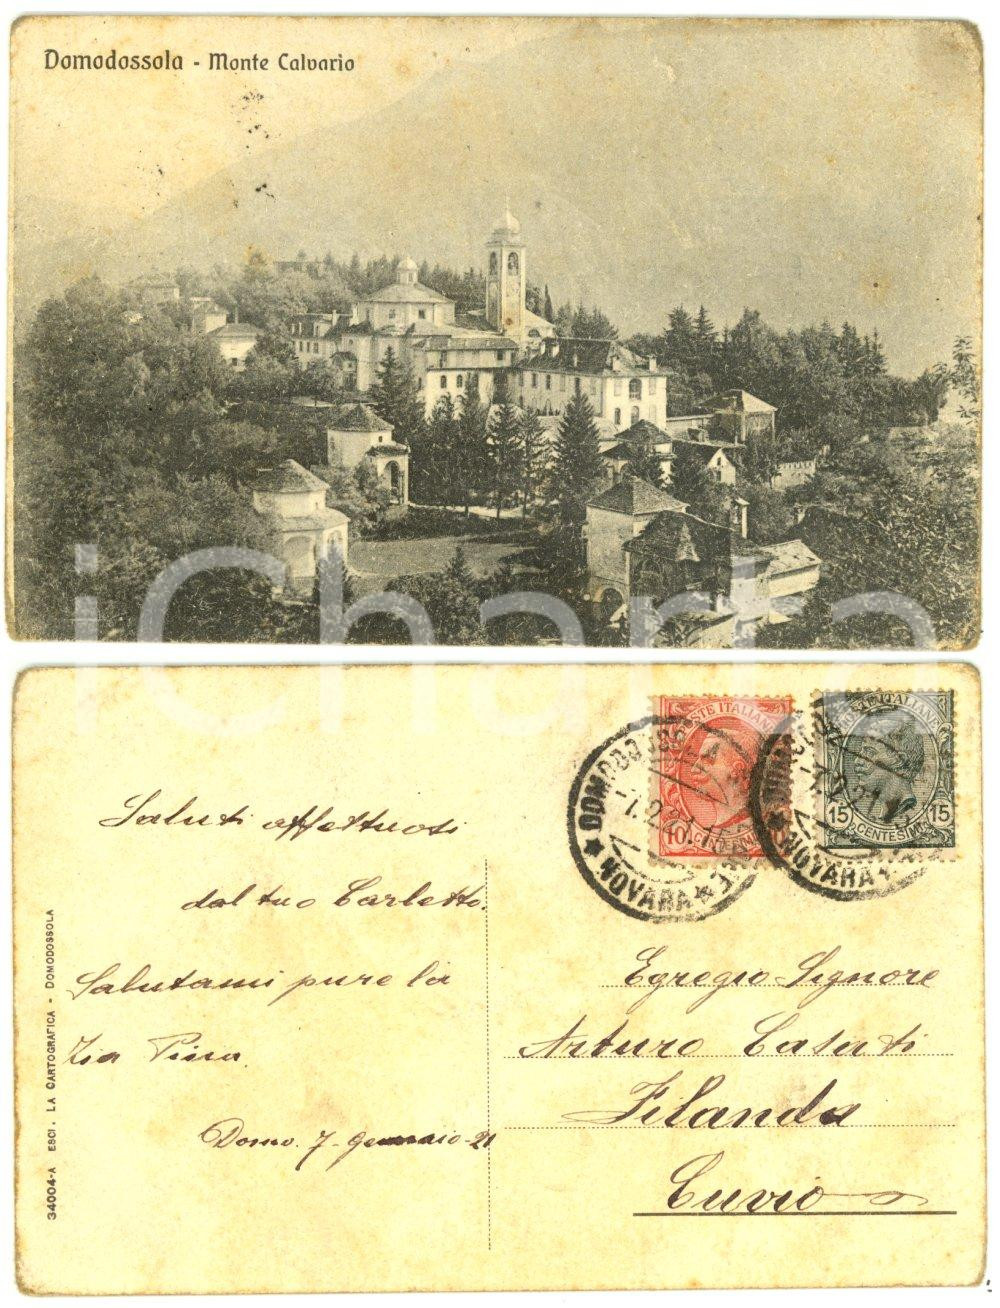 Domodossola - Monte Calvario
iCharta
POSTE ITALIANE
10
CENTESIMI
POSTE ITALIANE
15 15
CENTESIMI
DOMODOSSOLA
-7.2.21.
★ NOVARA ★
DOMODOSSOLA
-7.2.21.
★ NOVARA ★
Saluti affettuosi
dal tuo Carletto.
Salutami pure la
Zia Pina.
Domo. 7 - Gennaio - 21
Egregio Signore
Arturo Casati
Filanda
Cuvio
34004-A ESCl. LA CARTOGRAFICA - DOMODOSSOLA